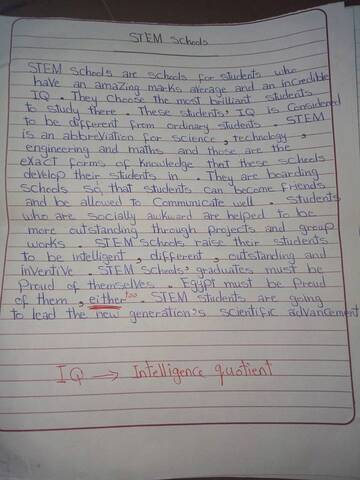 STEM Schools
STEM Schools are schools for students who
have an amazing marks average and an incredible
IQ. They choose the most brilliant students
to study there. These students' IQ is considered
to be different from ordinary students. STEM
is an abbreviation for science, technology,
engineering and maths and those are the
exact forms of knowledge that these schools
develop their students in. They are boarding
schools so that students can become friends
and be allowed to communicate well. Students
who are socially awkward are helped to be
more outstanding through projects and group
works. STEM schools raise their students
to be intelligent, different, outstanding and
inventive. STEM schools' graduates must be
proud of themselves. Egypt must be proud
too
of them, either. STEM students are going
to lead the new generation's scientific advancement
IQ → Intelligence quotient